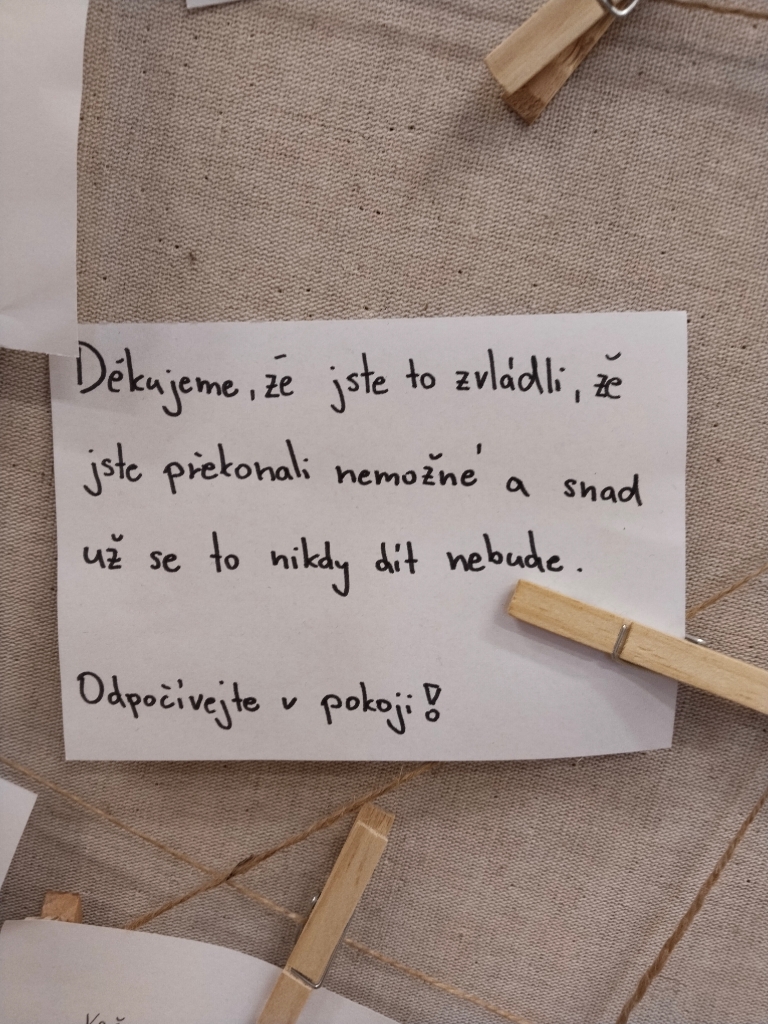 Děkujeme, že jste to zvládli, že
jste překonali nemožné a snad
už se to nikdy dít nebude.
Odpočívejte v pokoji!